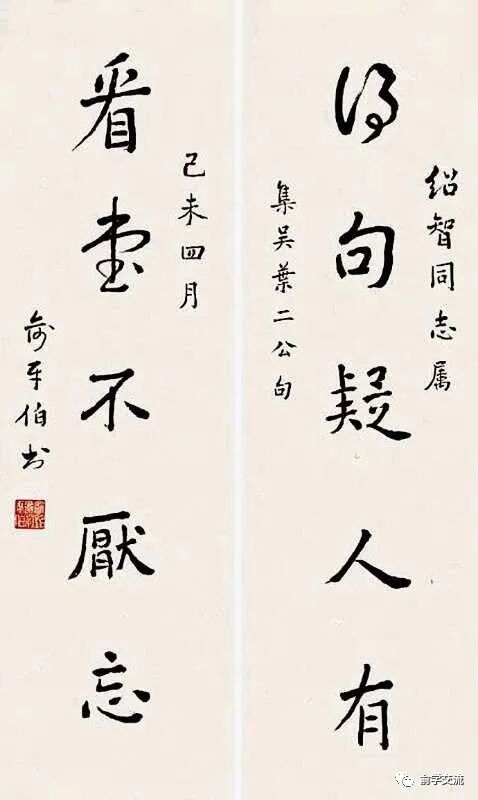 绍智同志属
得句疑人有
集吴葉二公句
己未四月
看書不厭忘
俞平伯书
俞学交流